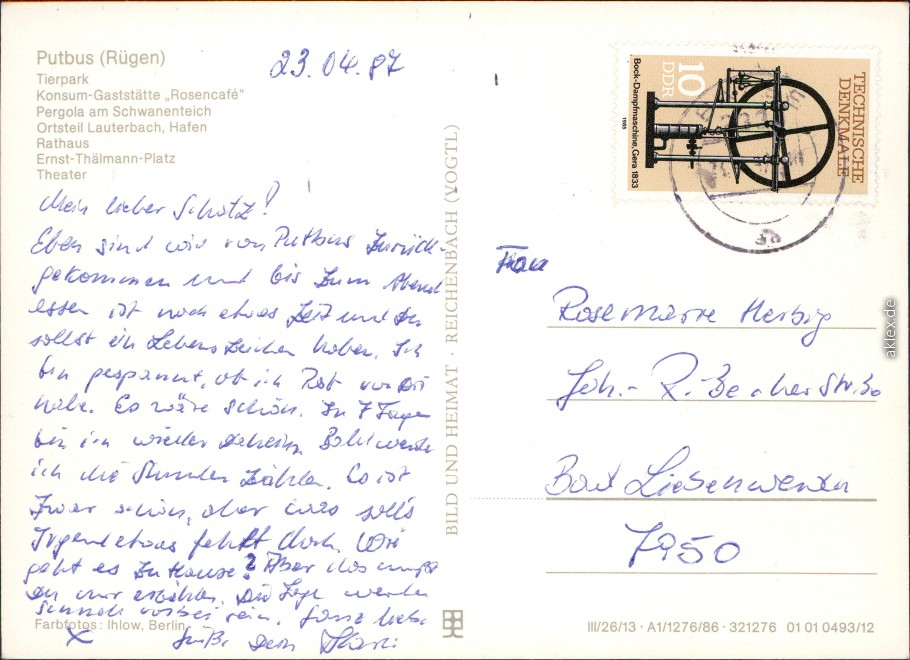 Putbus (Rügen)
Tierpark
Konsum-Gaststätte „Rosencafé“
Pergola am Schwanenteich
Ortsteil Lauterbach, Hafen
Rathaus
Ernst-Thälmann-Platz
Theater
23.04.87
Mein lieber Schatz!
Eben sind wir von Putbus zurück-
gekommen und bis zum Abend
essen ist noch etwas Zeit und Du
sollst ein Lebenszeichen haben. Ich
bin gespannt, ob ich Post von Dir
habe. Es wäre schön. In 7 Tagen
bin ich wieder daheim. Bald werde
ich die Stunden zählen. Es ist
zwar schön, aber was solls
Irgend etwas fehlt doch. Wie
geht es zu Hause? Aber das mußt
Du mir erzählen. Die Tage werden
schnell vorbei sein. Ganz liebe
Grüße Dein
Farbfotos: Ihlow, Berlin
BILD UND HEIMAT · REICHENBACH (VOGTL)
TECHNISCHE
DENKMALE
10
DDR
Bock-Dampfmaschine, Gera 1833
1985
Frau
Rosemarie Herbig
Joh.-R.-Becher Str.
Bad Liebenwerda
7950
III/26/13 · A1/1276/86 · 321276 01 01 0493/12
aklex.de